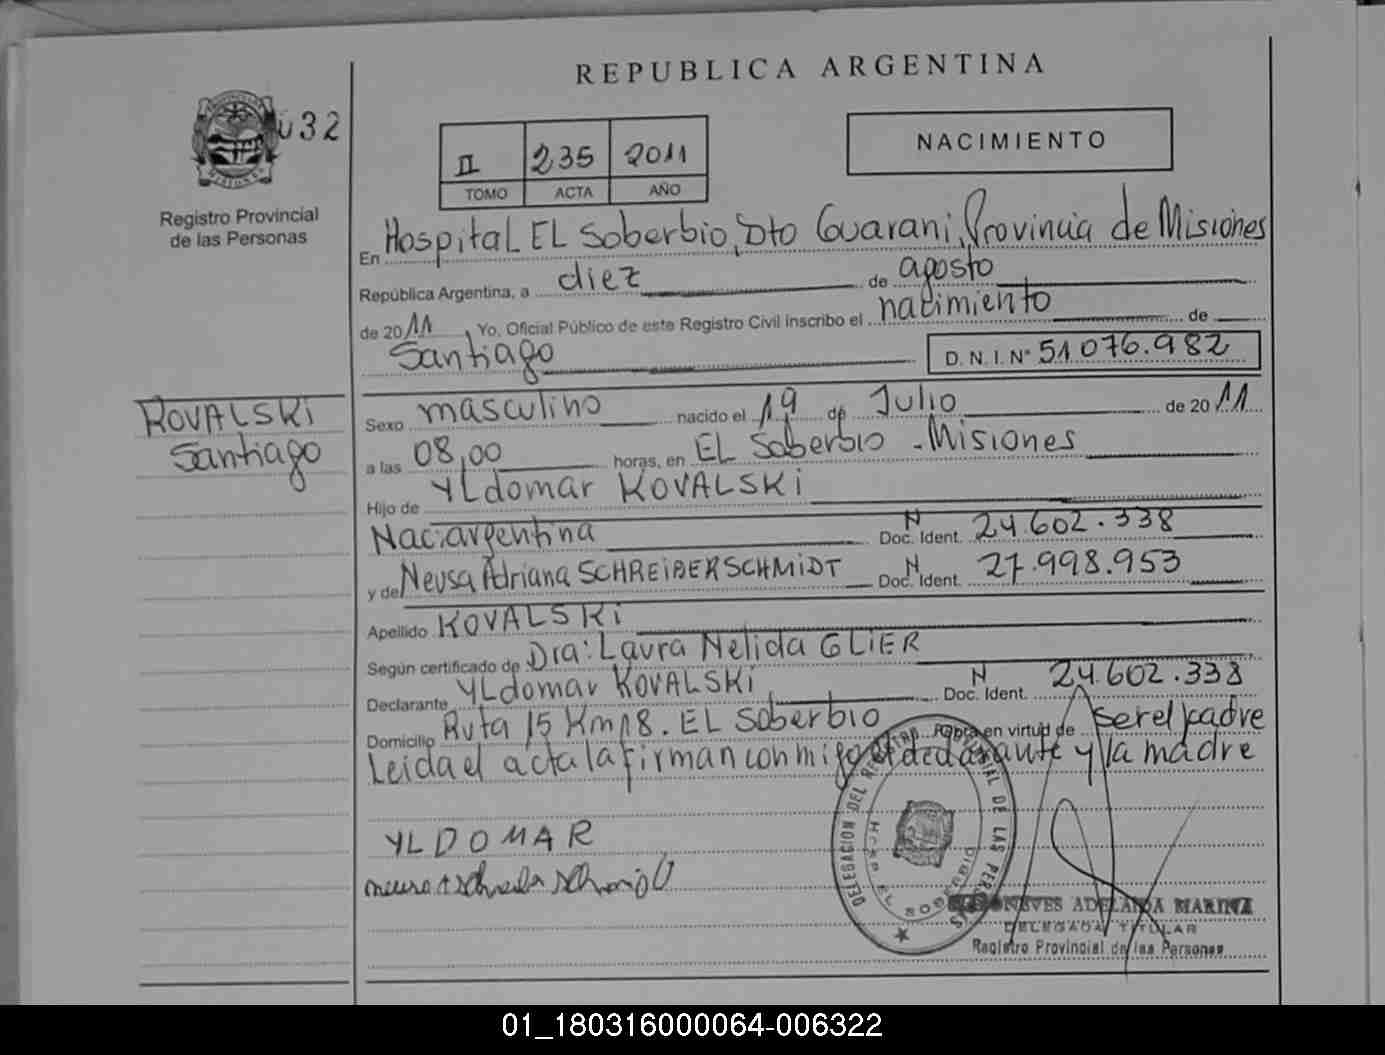 REPUBLICA ARGENTINA
032
II 235 2011
TOMO ACTA AÑO
NACIMIENTO
Registro Provincial
de las Personas
En Hospital EL Soberbio, Dto Guarani, Provincia de Misiones
República Argentina, a diez de agosto
de 2011, Yo, Oficial Público de este Registro Civil inscribo el nacimiento de
Santiago D. N. I. Nº 51.076.982
KOVALSKi
Santiago
Sexo masculino nacido el 19 de Julio de 2011
a las 08,00 horas, en EL Soberbio - Misiones
Hijo de YLdomar KOVALSKi
Nac: argentina Doc. Ident. N 24.602.338
y de Neusa Adriana SCHREiBER SCHMiDT Doc. Ident. N 27.998.953
Apellido KOVALSKi
Según certificado de Dra: Laura Nelida GLiER
Declarante YLdomar KOVALSKi Doc. Ident. N 24.602.338
Domicilio Ruta 15 Km 18. EL Soberbio Obra en virtud de ser el padre
Leida el acta la firman conmigo el declarante y la madre
YLDOMAR
DELEGACION DEL REGISTRO PROVINCIAL DE LAS PERSONAS
HOSP EL SOBERBIO
NEVES ADELAIDA MARINA
DELEGADA TITULAR
Registro Provincial de las Personas
01_180316000064-006322